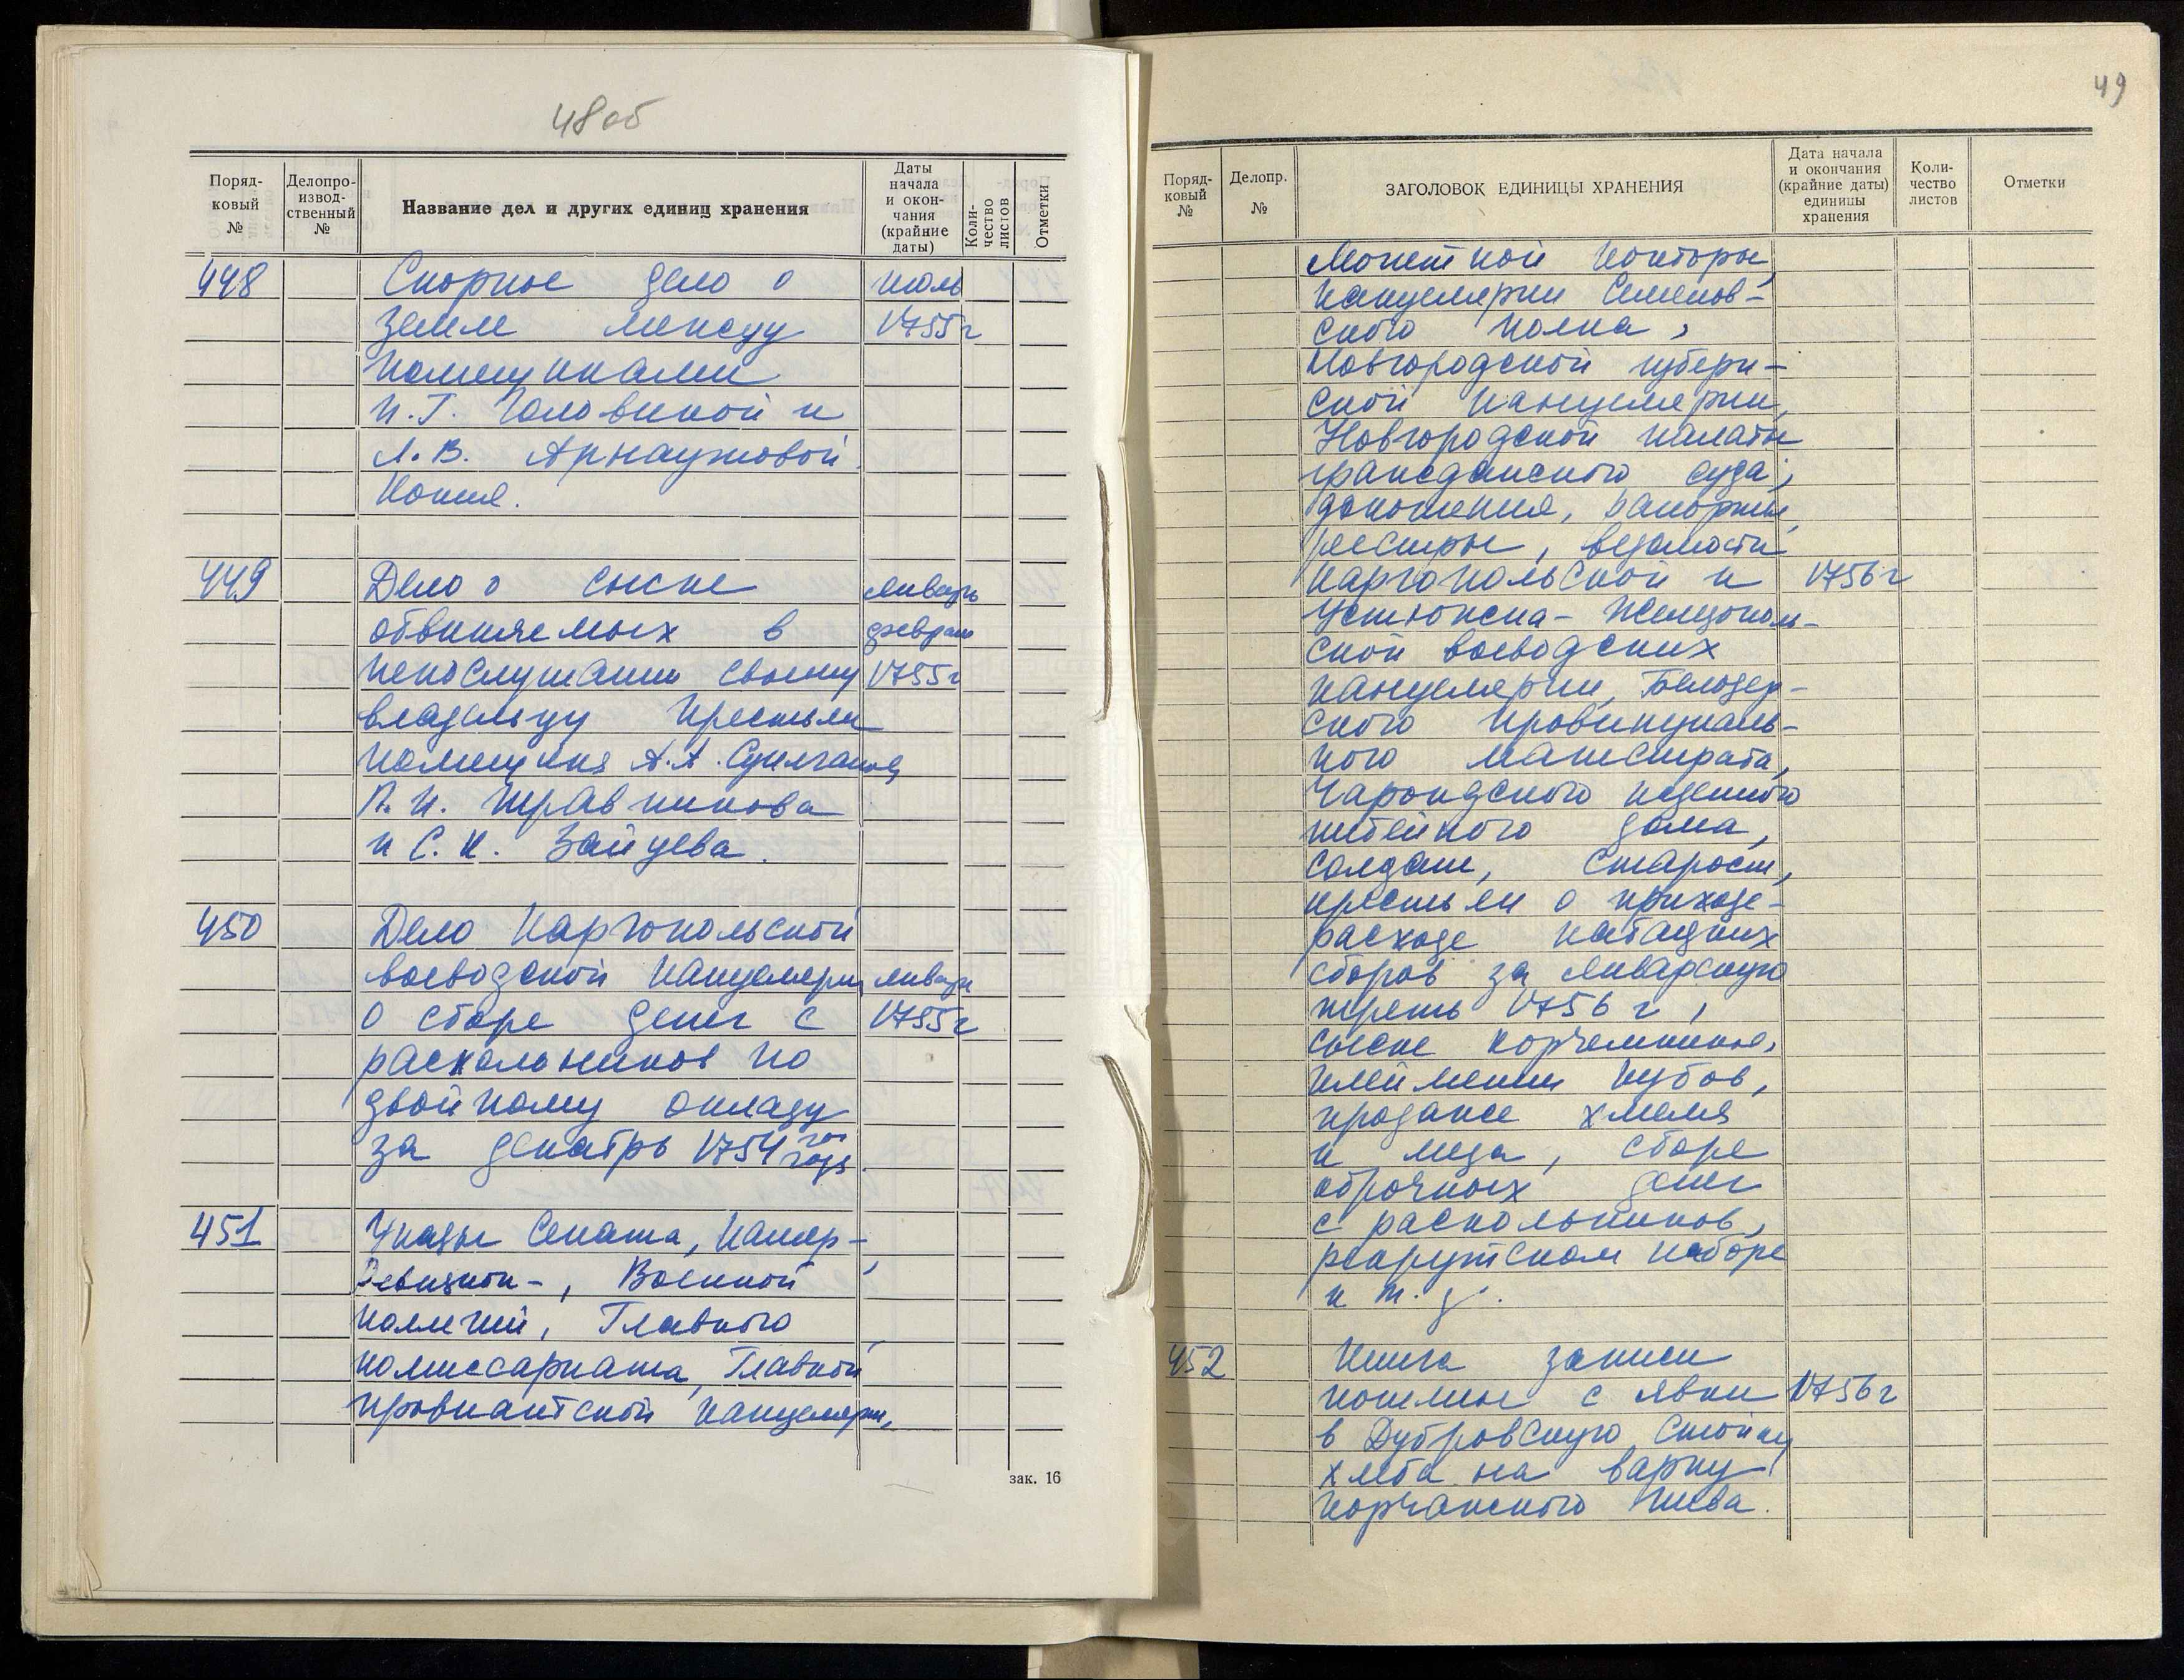 48об
Поряд-
ковый
№
Делопро-
извод-
ственный
№
Название дел и других единиц хранения
Даты
начала
и окон-
чания
(крайние
даты)
Коли-
чество
листов
Отметки
448 Спорное дело о июль
земле между 1755г
помещиками
И.Г. Головиной и
А.В. Арнаутовой.
Копия.
449 Дело о сыске январь
обвиняемых в февраль
непослушании своему 1755г
владельцу крестьян
помещика А.А.
П.И. Травникова
и С.И. Зайцева.
450 Дело Каргопольской
воеводской канцелярии январь
о сборе денег с 1755г
раскольников по
двойному окладу
за декабрь 1754 года.
451 Указы Сената, Камер-,
Ревизион-, Военной
коллегий, Главного
комиссариата, Главной
провиантской канцелярии,
зак. 16
49
Поряд-
ковый
№
Делопр.
№
ЗАГОЛОВОК ЕДИНИЦЫ ХРАНЕНИЯ
Дата начала
и окончания
(крайние даты)
единицы
хранения
Коли-
чество
листов
Отметки
Монетной конторы,
канцелярии Семенов-
ского полка,
Новгородской губерн-
ской канцелярии,
Новгородской палаты
гражданского суда;
доношения, рапорты,
реестры, ведомости
Каргопольской и 1756г
Устюжена-Железополь-
ской воеводских
канцелярии, Белозер-
ского провинциаль-
ного магистрата,
Чарондского казенного
питейного дома,
солдат, старост,
крестьян о приходе-
расходе кабацких
сборов за январскую
треть 1756 г,
сыске корчемников,
клеймении кубов,
продаже хмеля
и меда, сборе
оброчных денег
с раскольников,
рекрутском наборе
и т.д.
452 Книга записи
пошлин с явки 1756г
в Дубровскую стойку
хлеба на варку
корчажного пива.